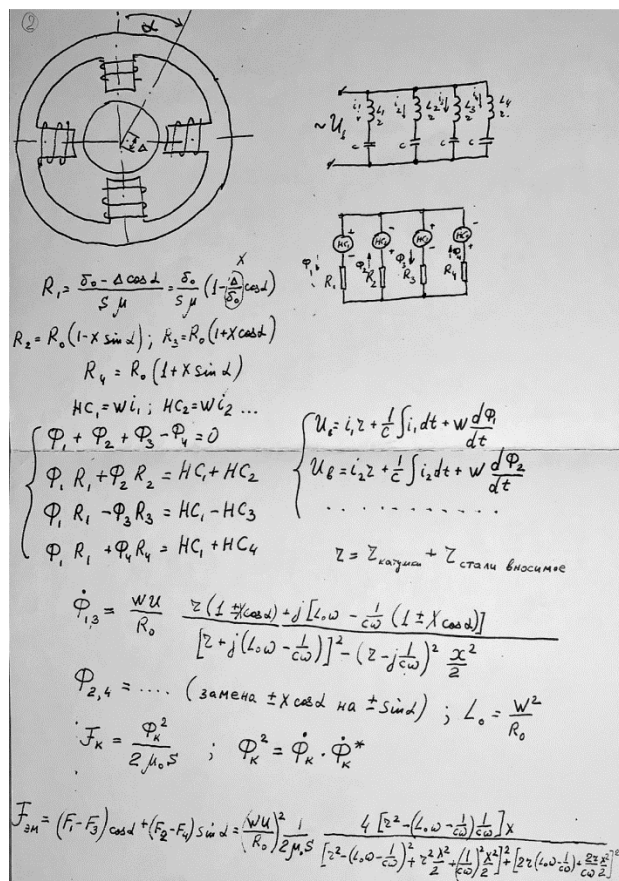 ②
α
Δ
~ U_в
i_1 L_1 r i_2 L_2 r i_3 L_3 r i_4 L_4 r
c c c c
НС_1 НС_2 НС_3 НС_4
Φ_1 R_1 Φ_2 R_2 Φ_3 R_3 Φ_4 R_4
x
R_1 = (δ_0 - Δ cos α)/(S μ) = δ_0/(S μ) (1 - (Δ/δ_0) cos α)
R_2 = R_0 (1 - x sin α) ; R_3 = R_0 (1 + x cos α)
R_4 = R_0 (1 + x sin α)
НС_1 = W i_1 ; НС_2 = W i_2 ...
Φ_1 + Φ_2 + Φ_3 - Φ_4 = 0
Φ_1 R_1 + Φ_2 R_2 = НС_1 + НС_2
Φ_1 R_1 - Φ_3 R_3 = НС_1 - НС_3
Φ_1 R_1 + Φ_4 R_4 = НС_1 + НС_4
U_в = i_1 r + 1/c ∫ i_1 dt + W dΦ_1/dt
U_в = i_2 r + 1/c ∫ i_2 dt + W dΦ_2/dt
. . . . . . . . . . .
r = r катушки + r стали вносимое
Φ̇_1,3 = WU/R_0 (r (1 ± x cos α) + j [L_0 ω - 1/(cω) (1 ± x cos α)]) / ([r + j (L_0 ω - 1/(cω))]^2 - (r - j 1/(cω))^2 x^2/2)
Φ_2,4 = .... (замена ± x cos α на ± sin α) ; L_0 = W^2/R_0
F_к = Φ_к^2/(2 μ_0 S) ; Φ_к^2 = Φ̇_к · Φ̇_к^*
F_эм = (F_1 - F_3) cos α + (F_2 - F_4) sin α = (WU/R_0)^2 1/(2 μ_0 S) 4 [r^2 - (L_0 ω - 1/(cω)) 1/(cω)] x / ([r^2 - (L_0 ω - 1/(cω))^2 + r^2 x^2/2 + (1/(cω))^2 x^2/2]^2 + [2r (L_0 ω - 1/(cω)) + 2r/(cω) x^2/2]^2)